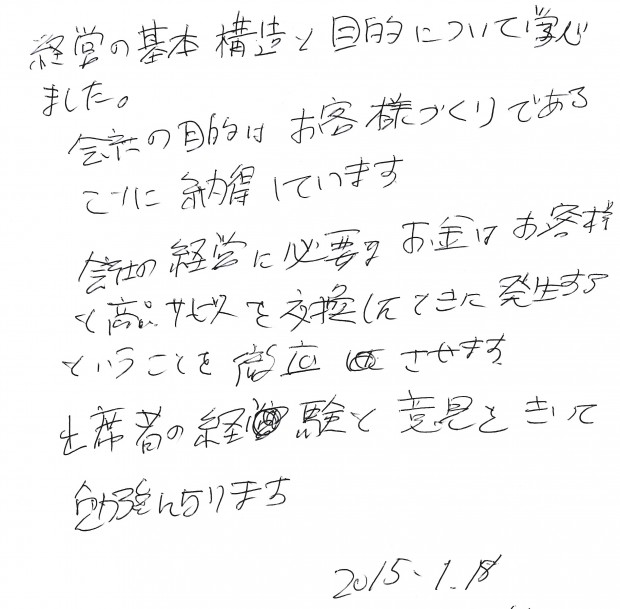 経営の基本構造と目的について学び
ました。
会社の目的はお客様づくりである
ことに納得しています
会社の経営に必要なお金はお客様
と商品サービスを交換したときに発生する
ということを徹底させます
出席者の経験と意見をきいて
勉強になります
2015.1.18